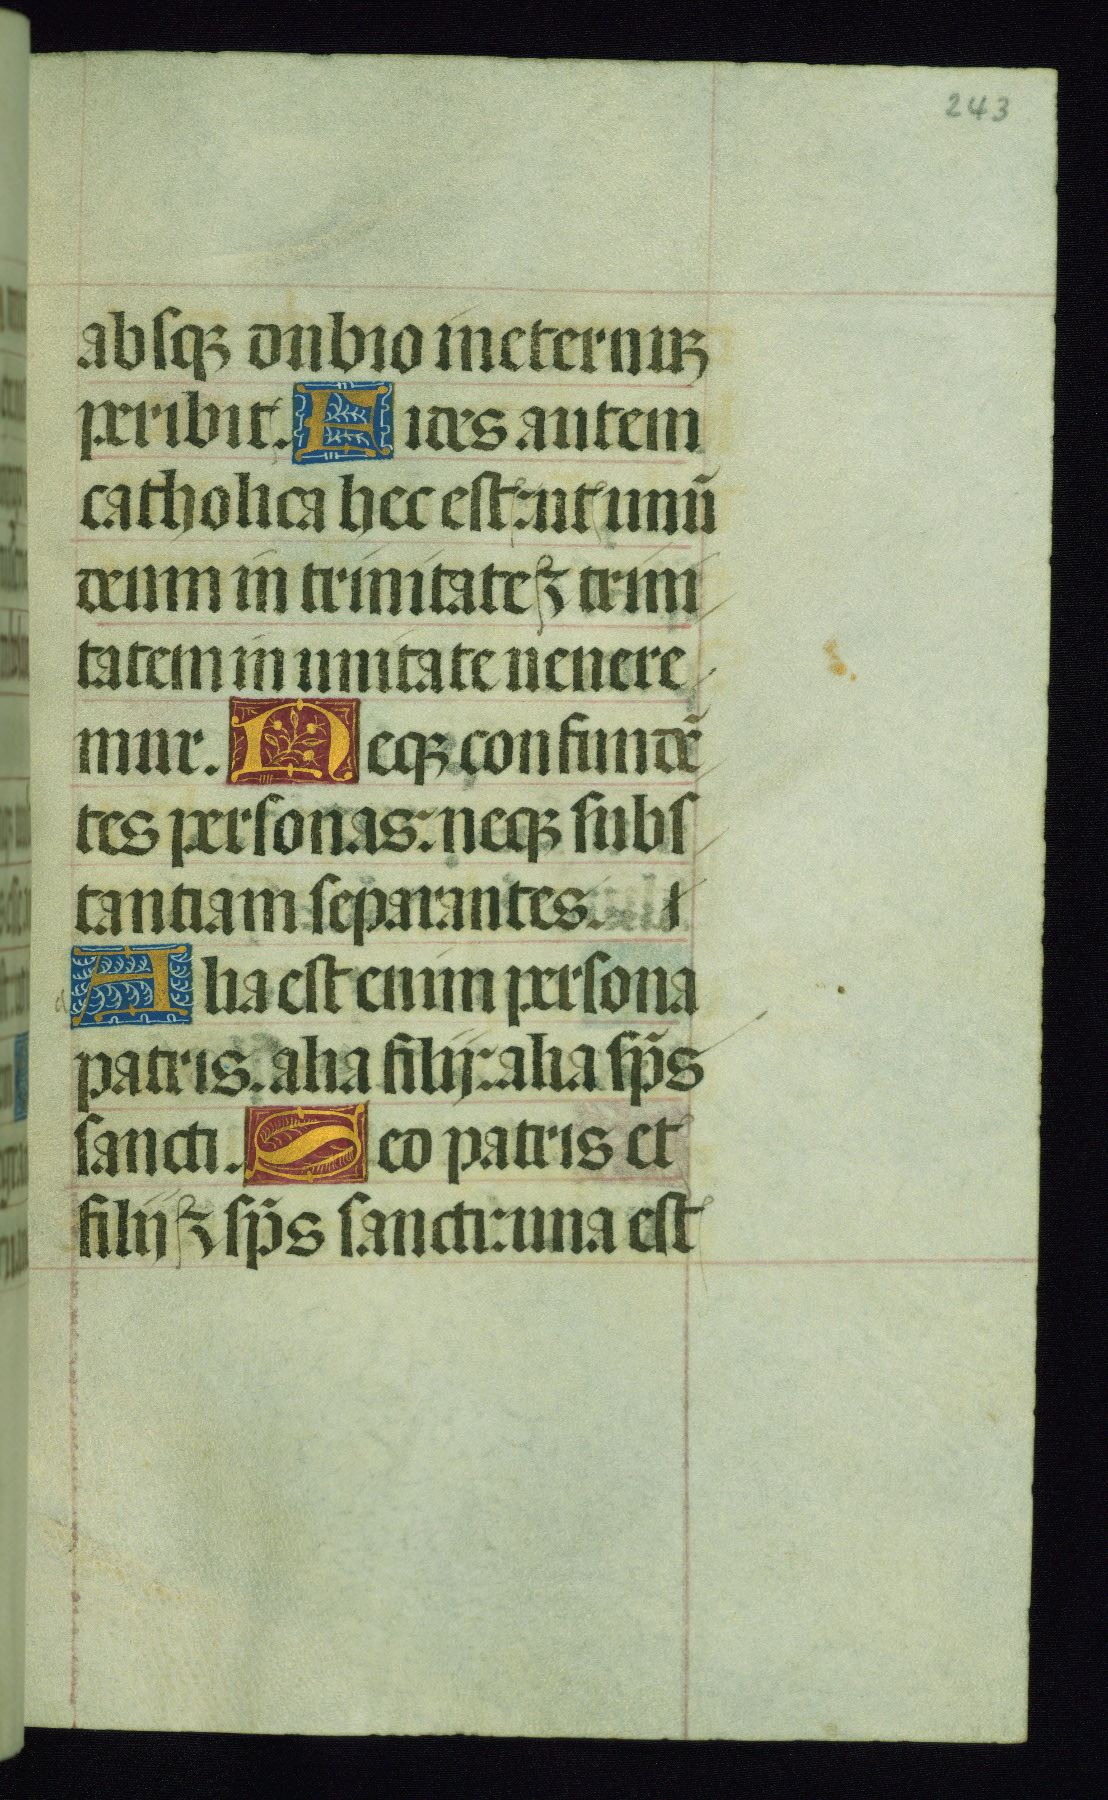 243
absqꝫ dubio in eternūꝫ
peribit. Fides autem
catholica hec est: ut unū
deum in trinitate ꝫ trini
tatem in unitate uenere
mur. Neqꝫ confundē
tes personas: neqꝫ subs
tantiam separantes.
Alia est enim persona
patris. alia filij: alia sp̄s
sancti. Sed patris et
filij ꝫ sp̄s sancti: una est